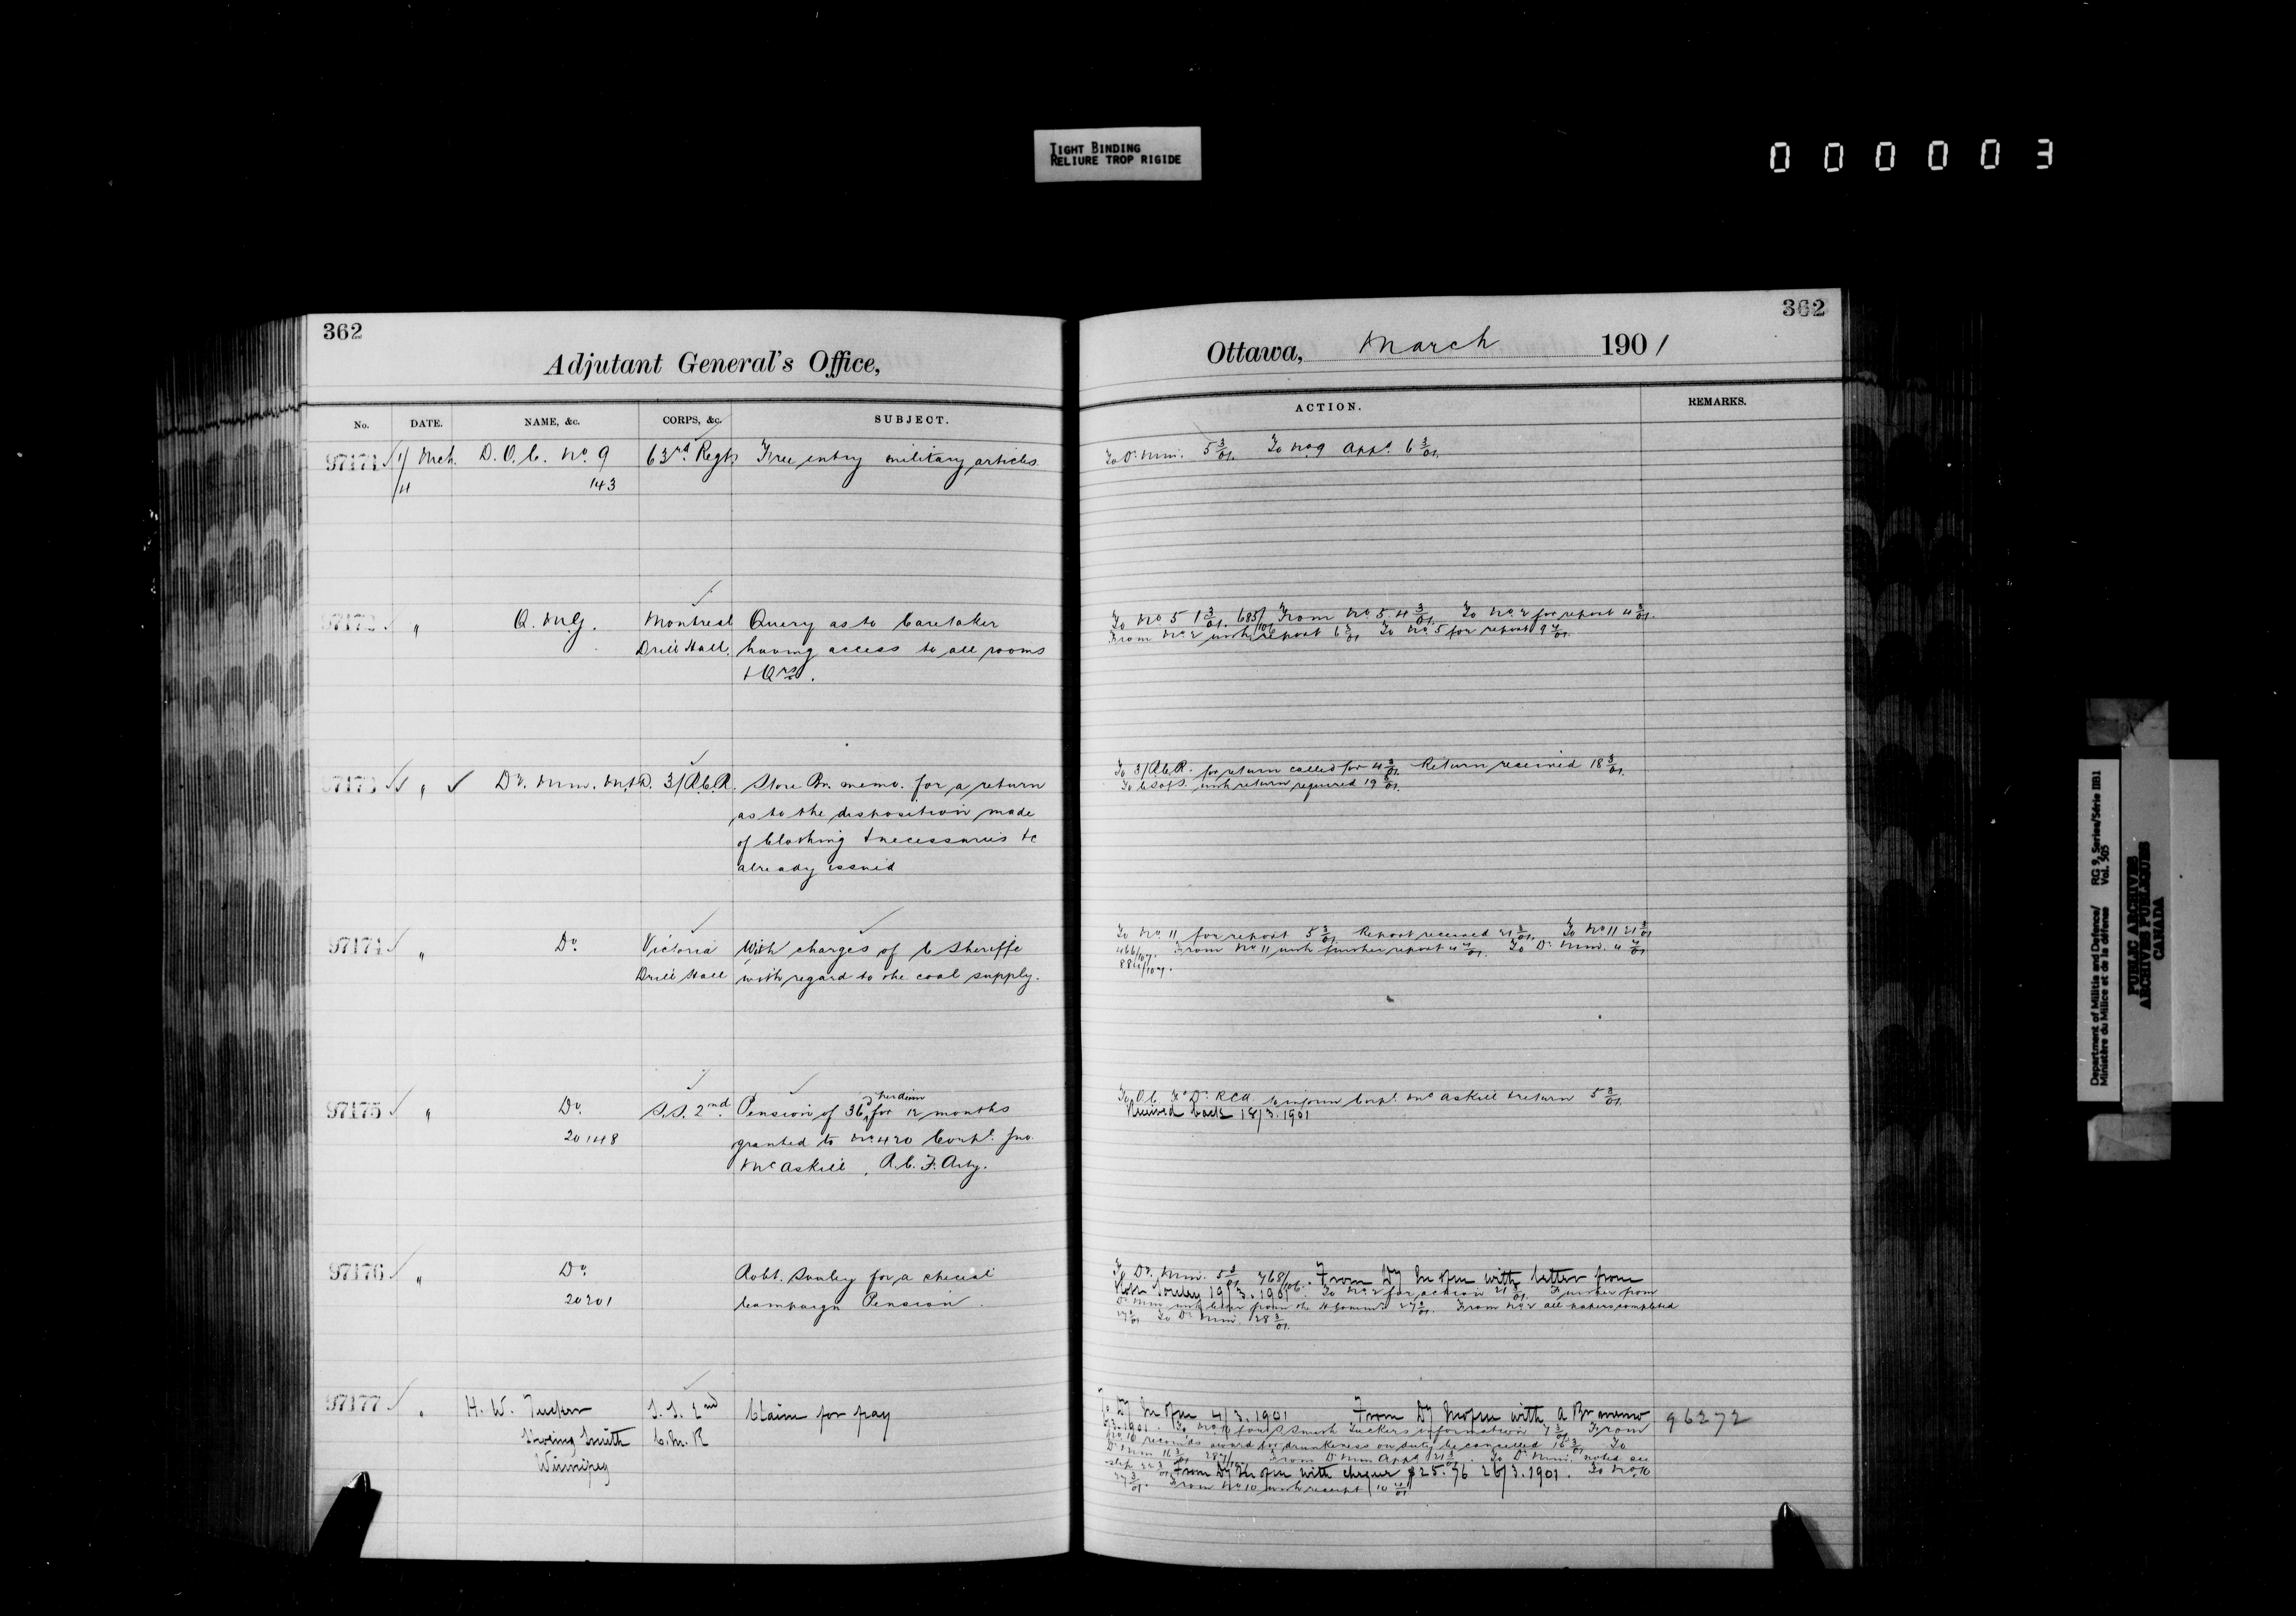 TIGHT BINDING
RELIURE TROP RIGIDE
000003
362
Adjutant General's Office,
No. DATE. NAME, &c. CORPS, &c. SUBJECT.
97171 1/ Mch. D.O.C. No. 9 63rd Regt Free entry military articles.
/4 143
97172 " Q.M.G. Montreal Query as to Caretaker
Drill Hall. having access to all rooms
& Qrs.
97173 " Dr. Min. M&D. 3/R.C.R. Store Br. memo. for a return
as to the disposition made
of Clothing & necessaries &c
already issued
97174 " Do. Victoria With charges of
Drill Hall with regard to the coal supply.
97175 " Do. S.S. 2nd. Pension of 36d per diem for 12 months
20148 granted to No. 420 Corpl. Jno.
McAskill, R.C.F. Arty.
97176 " Do. Robt. for a special
20201 Campaign Pension.
97177 " H. W. Tucker S.S. 2nd Claim for pay
Smith C.M.R
Winnipeg
362
Ottawa, March 1901
ACTION. REMARKS.
To D. Min. 5 3/01. To No. 9 appd. 6 3/01.
To No 5 1 3/01. 685/106 From No. 5. 4 3/01. To No. 2 for report 4 3/01.
From No. 2 with report 6 3/01 To No. 5 for report 9 3/01.
To 3/R.C.R. for return called for 4 3/01. Return received 18 3/01.
To C. of S. with return required 19 3/01.
To No. 11 for report 5 3/01. Report received 21 3/01. To No 11 21 3/01
466/107. From No 11 with further report 4 4/01. To D. Min. 4 4/01
884/107.
To O.C. "D" RCA to inform Corpl. McAskill & return 5 3/01.
Received back 18/3.1901
To D. Min. 5 3/01. 768/106. From Dy Min with letter from
19/3.1901. To No 2 for action 21 3/01. Further from
D. Min with letter from the 27 3/01. From No 2 all papers completed
27 3/01 To D. Min. 28 3/01.
To Dy Min 4/3.1901 From Dy Min with a Br memo 96272
To No 10 for Tuckers information 7 3/01. From
No 10 recomds award for drunkeness on duty be cancelled 16 3/01. To
D. Min From D. Min Appd. 21 3/01. To D. Min. noted on
slip 22 3/01. From Dy Min with cheque $25.76 26/3.1901. To No. 10
27 3/01. From No 10 with receipt 10 4/01
Department of Militia and Defence/ RG 9, Series/Série IIB1
Ministère du Milice et de la défense Vol. 505
PUBLIC ARCHIVES
ARCHIVES PUBLIQUES
CANADA